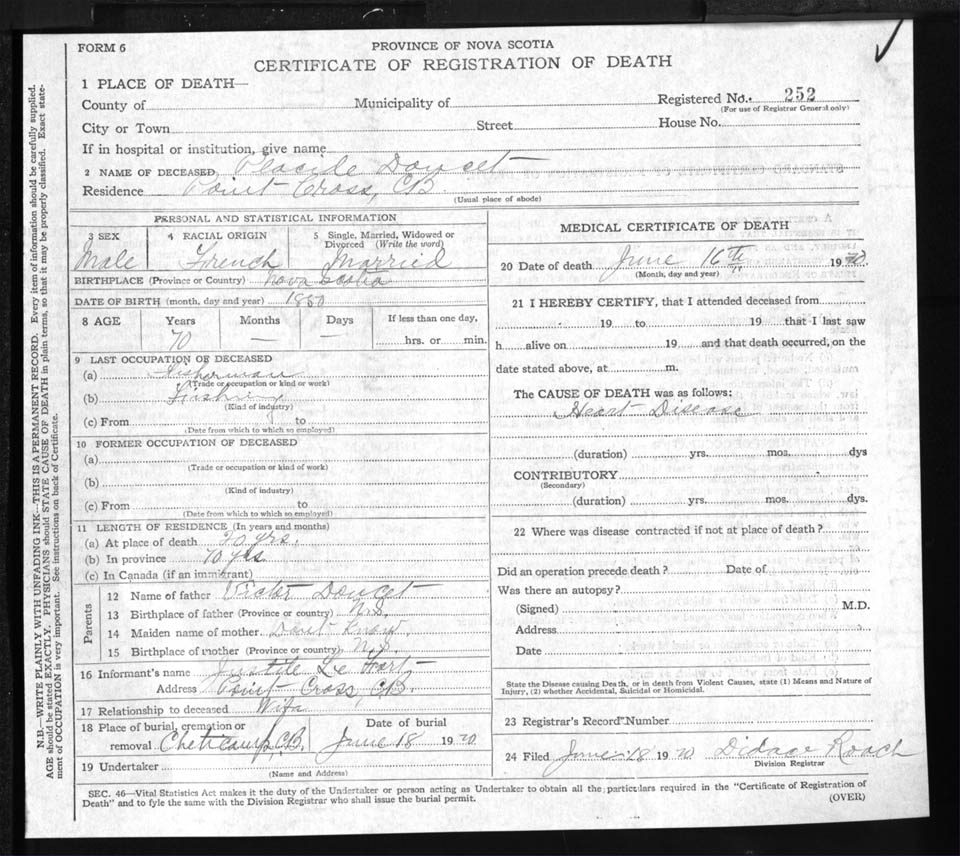 FORM 6
PROVINCE OF NOVA SCOTIA
CERTIFICATE OF REGISTRATION OF DEATH
1 PLACE OF DEATH—
County of Municipality of Registered No. 252
(For use of Registrar General only)
City or Town Street House No.
If in hospital or institution, give name
2 NAME OF DECEASED Placide Doucet
Residence Point Cross, C.B.
(Usual place of abode)
PERSONAL AND STATISTICAL INFORMATION
3 SEX 4 RACIAL ORIGIN 5 Single, Married, Widowed or
Divorced (Write the word)
Male French Married
BIRTHPLACE (Province or Country) Nova Scotia
DATE OF BIRTH (month, day and year) 1850
8 AGE Years Months Days If less than one day,
70 — — hrs. or min.
9 LAST OCCUPATION OF DECEASED
(a) Fisherman
(Trade or occupation or kind or work)
(b) Fishing
(Kind of industry)
(c) From to
(Date from which to which so employed)
10 FORMER OCCUPATION OF DECEASED
(a)
(Trade or occupation or kind of work)
(b)
(Kind of industry)
(c) From to
(Date from which to which so employed)
11 LENGTH OF RESIDENCE (In years and months)
(a) At place of death 70 yrs.
(b) In province 70 yrs
(c) In Canada (if an immigrant)
Parents
12 Name of father Victor Doucet
13 Birthplace of father (Province or country) N.S.
14 Maiden name of mother Dont Know.
15 Birthplace of mother (Province or country) N.S.
16 Informant's name Le Fort
Address Point Cross, C.B.
17 Relationship to deceased Wife
18 Place of burial, cremation or Date of burial
removal Cheticamp, C.B. June 18 1920
19 Undertaker
(Name and Address)
MEDICAL CERTIFICATE OF DEATH
20 Date of death June 16th 1920
(Month, day and year)
21 I HEREBY CERTIFY, that I attended deceased from
19 to 19 that I last saw
h alive on 19 and that death occurred, on the
date stated above, at m.
The CAUSE OF DEATH was as follows:
Heart Disease
(duration) yrs. mos. dys
CONTRIBUTORY
(Secondary)
(duration) yrs. mos. dys.
22 Where was disease contracted if not at place of death?
Did an operation precede death? Date of
Was there an autopsy?
(Signed) M.D.
Address
Date
State the Disease causing Death, or in death from Violent Causes, state (1) Means and Nature of
Injury, (2) whether Accidental, Suicidal or Homicidal.
23 Registrar's Record Number
24 Filed June 18 1920 Didace Roach
Division Registrar
SEC. 46—Vital Statistics Act makes it the duty of the Undertaker or person acting as Undertaker to obtain all the particulars required in the "Certificate of Registration of
Death" and to fyle the same with the Division Registrar who shall issue the burial permit.
(OVER)
N.B.—WRITE PLAINLY WITH UNFADING INK—THIS IS A PERMANENT RECORD. Every item of information should be carefully supplied.
AGE should be stated EXACTLY. PHYSICIANS should STATE CAUSE OF DEATH in plain terms, so that it may be properly classified. Exact state-
ment of OCCUPATION is very important. See instructions on back of Certificate.